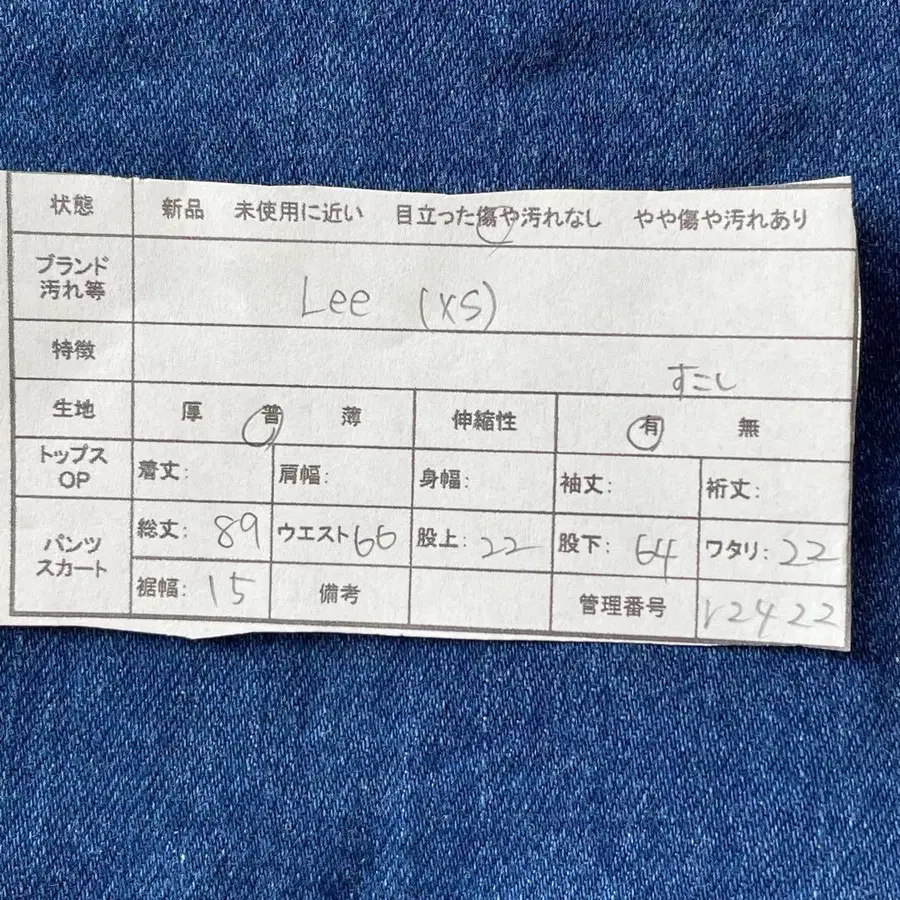 状態 新品 未使用に近い 目立った傷や汚れなし やや傷や汚れあり
ブランド
汚れ等
Lee (XS)
特徴
すこし
生地 厚 普 薄 伸縮性 有 無
トップス
OP
着丈: 肩幅: 身幅: 袖丈: 裄丈:
パンツ
スカート
総丈: 89 ウエスト 66 股上: 22 股下: 64 ワタリ: 22
裾幅: 15 備考 管理番号 r2422